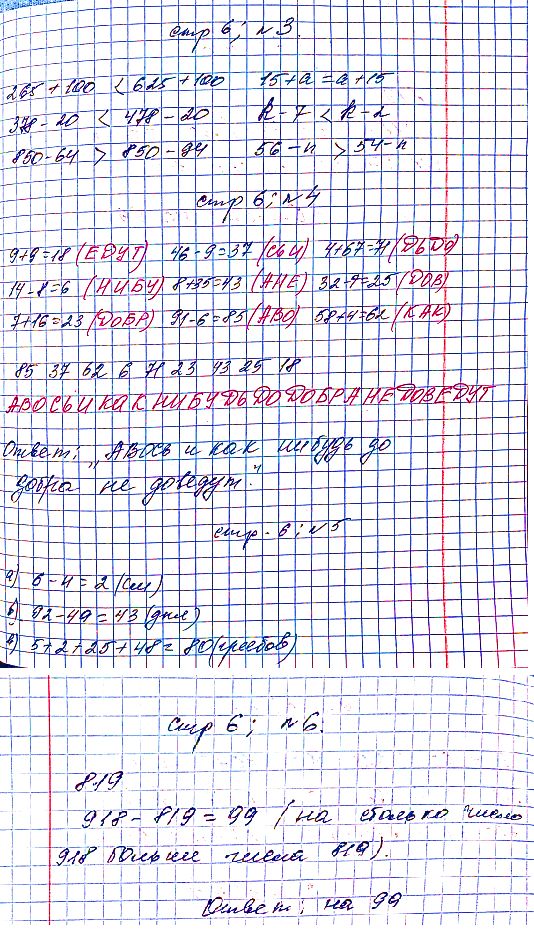 стр 6; №3.
265 + 100 < 625 + 100 15 + a = a + 15
378 - 20 < 478 - 20 k - 7 < k - 2
850 - 64 > 850 - 94 56 - n > 54 - n
стр 6; №4
9+9=18 (ЕДУТ) 46 - 9 = 37 (СЬИ) 4+67=71 (ДЬДО)
14 - 8 = 6 (НИБУ) 8+35=43 (АНЕ) 32-7=25 (ДОВ)
7+16=23 (ДОБР) 91-6=85 (АВО) 58+4=62 (КАК)
85 37 62 6 71 23 43 25 18
АВОСЬИКАКНИБУДЬДОДОБРАНЕДОВЕДУТ
Ответ: „Авось и как нибудь до
добра не доведут."
стр. 6; №5
а) 6 - 4 = 2 (см)
б) 92 - 49 = 43 (дня)
в) 5+2+25+48 = 80 (грибов)
стр 6; №6.
819
918 - 819 = 99 (на столько число
918 больше числа 819).
Ответ: на 99